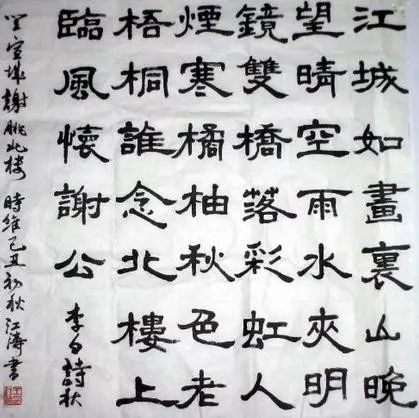 江城如畫裏山晚
望晴空雨水夾明
鏡雙橋落彩虹人
煙寒橘柚秋色老
梧桐誰念北樓上
臨風懷謝公 李白詩秋
登宣城謝朓北楼 時維己丑初秋江濤書